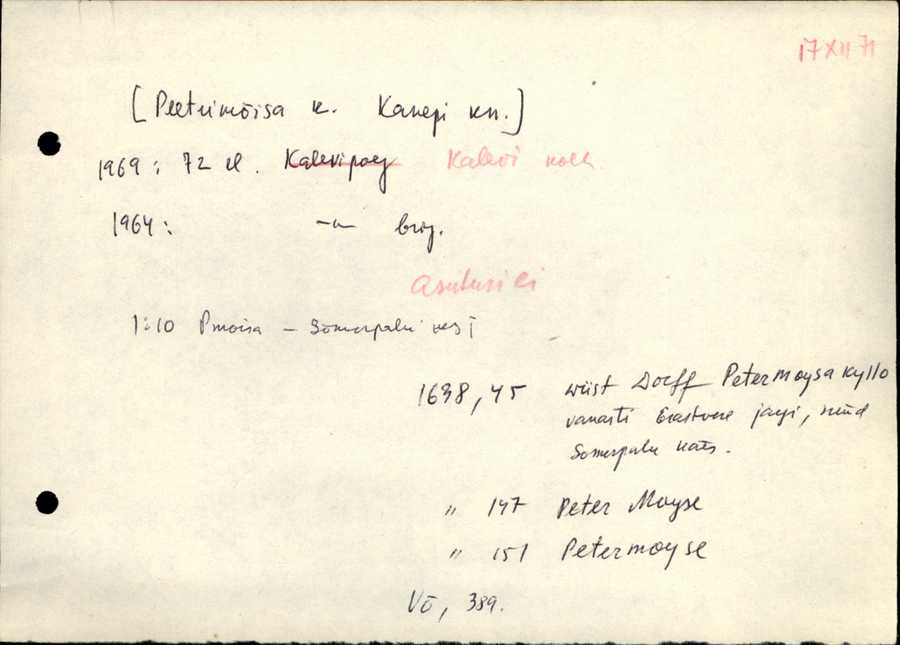 17 XII 71
[Peetrimõisa k. Kanepi kn.]
1969: 72 el. Kalevipoeg Kalevi kolh.
1964: –"– brig.
asutusili
1:10 Pmõisa – Sõmerpalu
1638, 45 wüst Dorff Petermoysa kyllo
vanasti Erastvere järgi, nüüd
Sõmerpalu
" 147 Peter Moyse
" 151 Petermoyse
Võ, 389.